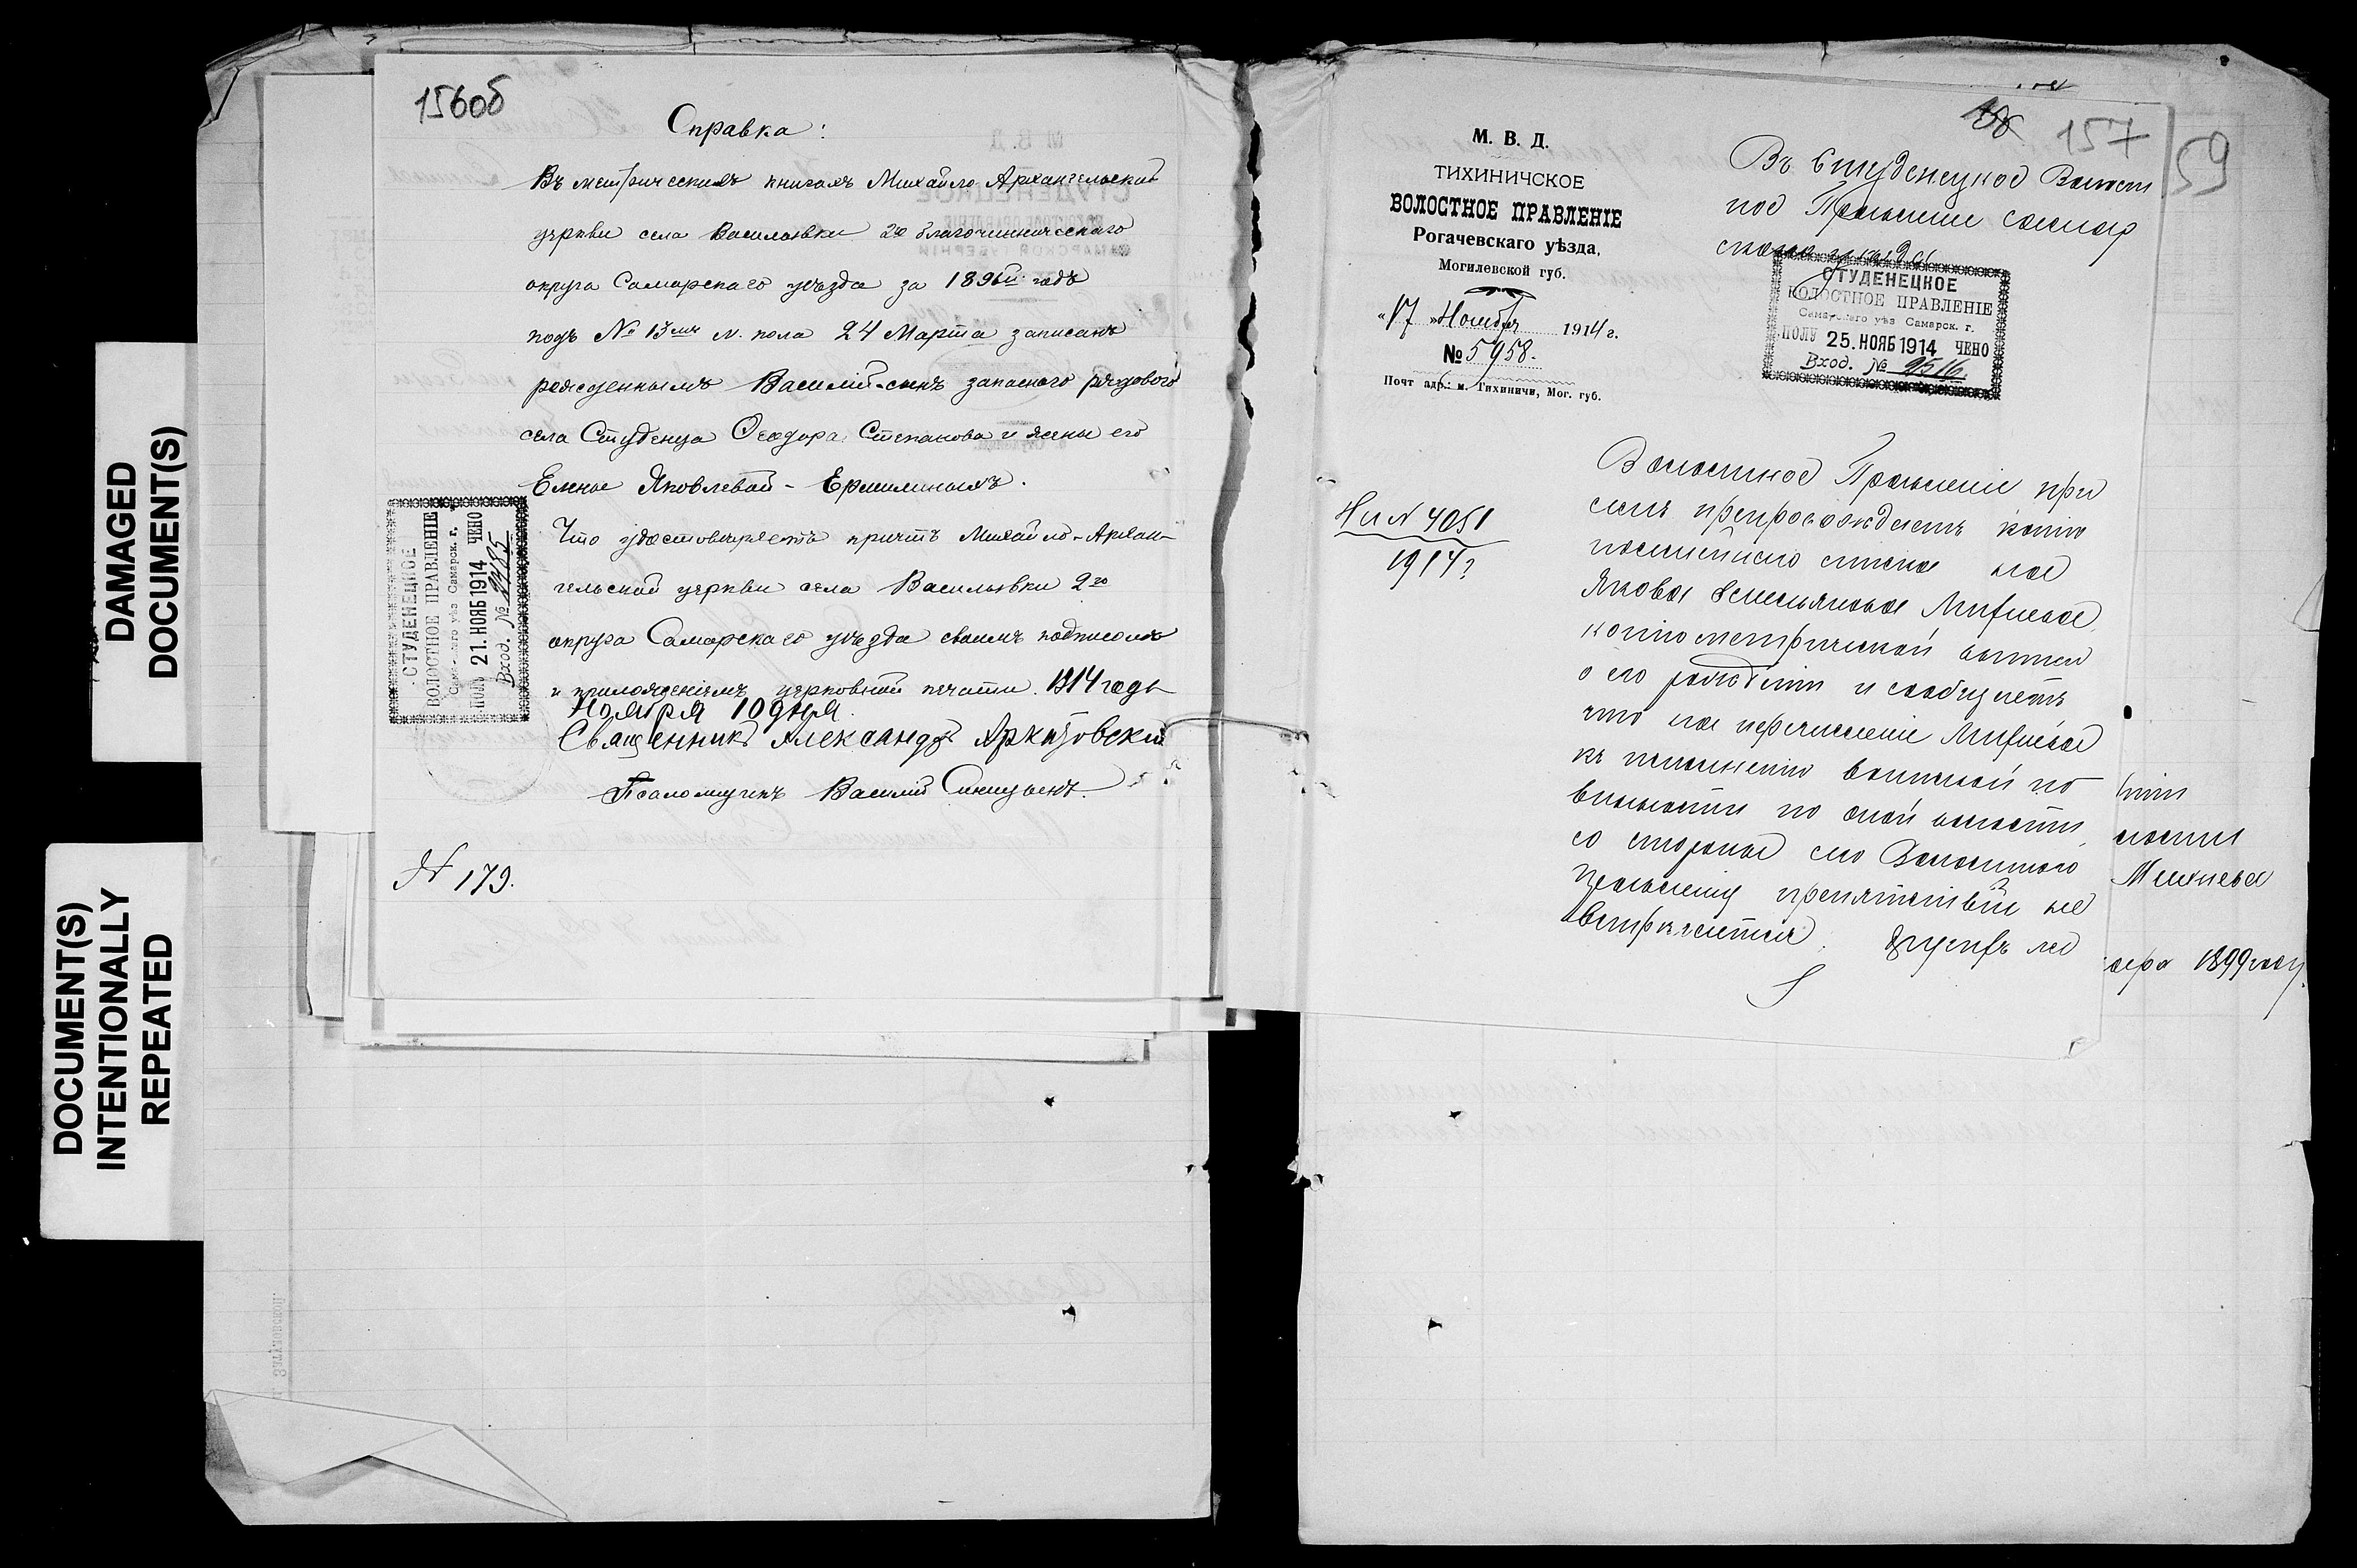 DAMAGED
DOCUMENT(S)
DOCUMENT(S)
INTENTIONALLY
REPEATED
156об
Справка:
Въ метрическихъ книгахъ Михайло Архангельской
церкви села Васильевки 2го благочинническаго
округа Самарскаго уѣзда за 1896й годъ
подъ № 13мъ м. пола 24 Марта записанъ
рожденнымъ Василій-сынъ запаснаго рядового
села Студенца Ѳеодора Степанова и жены его
Елены Яковлевой - Ермилиныхъ.
Что удостовѣряетъ причтъ Михайло-Архан-
гельской церкви села Васильевки 2го
округа Самарскаго уѣзда своимъ подписомъ
и приложеніемъ церковной печати. 1914 года
Ноября 10 дня.
Священникъ Александръ
Псаломщикъ Василій
№ 179.
СТУДЕНЕЦКОЕ
ВОЛОСТНОЕ ПРАВЛЕНІЕ
Самарскаго уѣз Самарск. г.
ПОЛУ 21. НОЯБ 1914 ЧЕНО
Вход. № 9485
М. В. Д.
ТИХИНИЧСКОЕ
ВОЛОСТНОЕ ПРАВЛЕНІЕ
Рогачевскаго уѣзда,
Могилевской губ.
„17 "Ноября 1914 г.
№ 5958.
Почт адр.: м. Тихиничи, Мог. губ.
На № 4051
1914 г
157
59
Въ Студенецкое Волост
ное Правленіе Самар
скаго уѣзда
СТУДЕНЕЦКОЕ
ВОЛОСТНОЕ ПРАВЛЕНІЕ
Самарскаго уѣз Самарск. г.
ПОЛУ 25. НОЯБ 1914 ЧЕНО
Вход. № 9516
Волостное Правленіе при
семъ препровождаетъ копію
посемейнаго списка на
Якова Емельянова
копію метрической выписи
о его рожденіи и сообщаетъ
что на перечисленіе
къ исполненію воинской по
винности по оной волости
со стороны сего Волостного
Правленія препятствій не
встрѣчается.
1899 году.